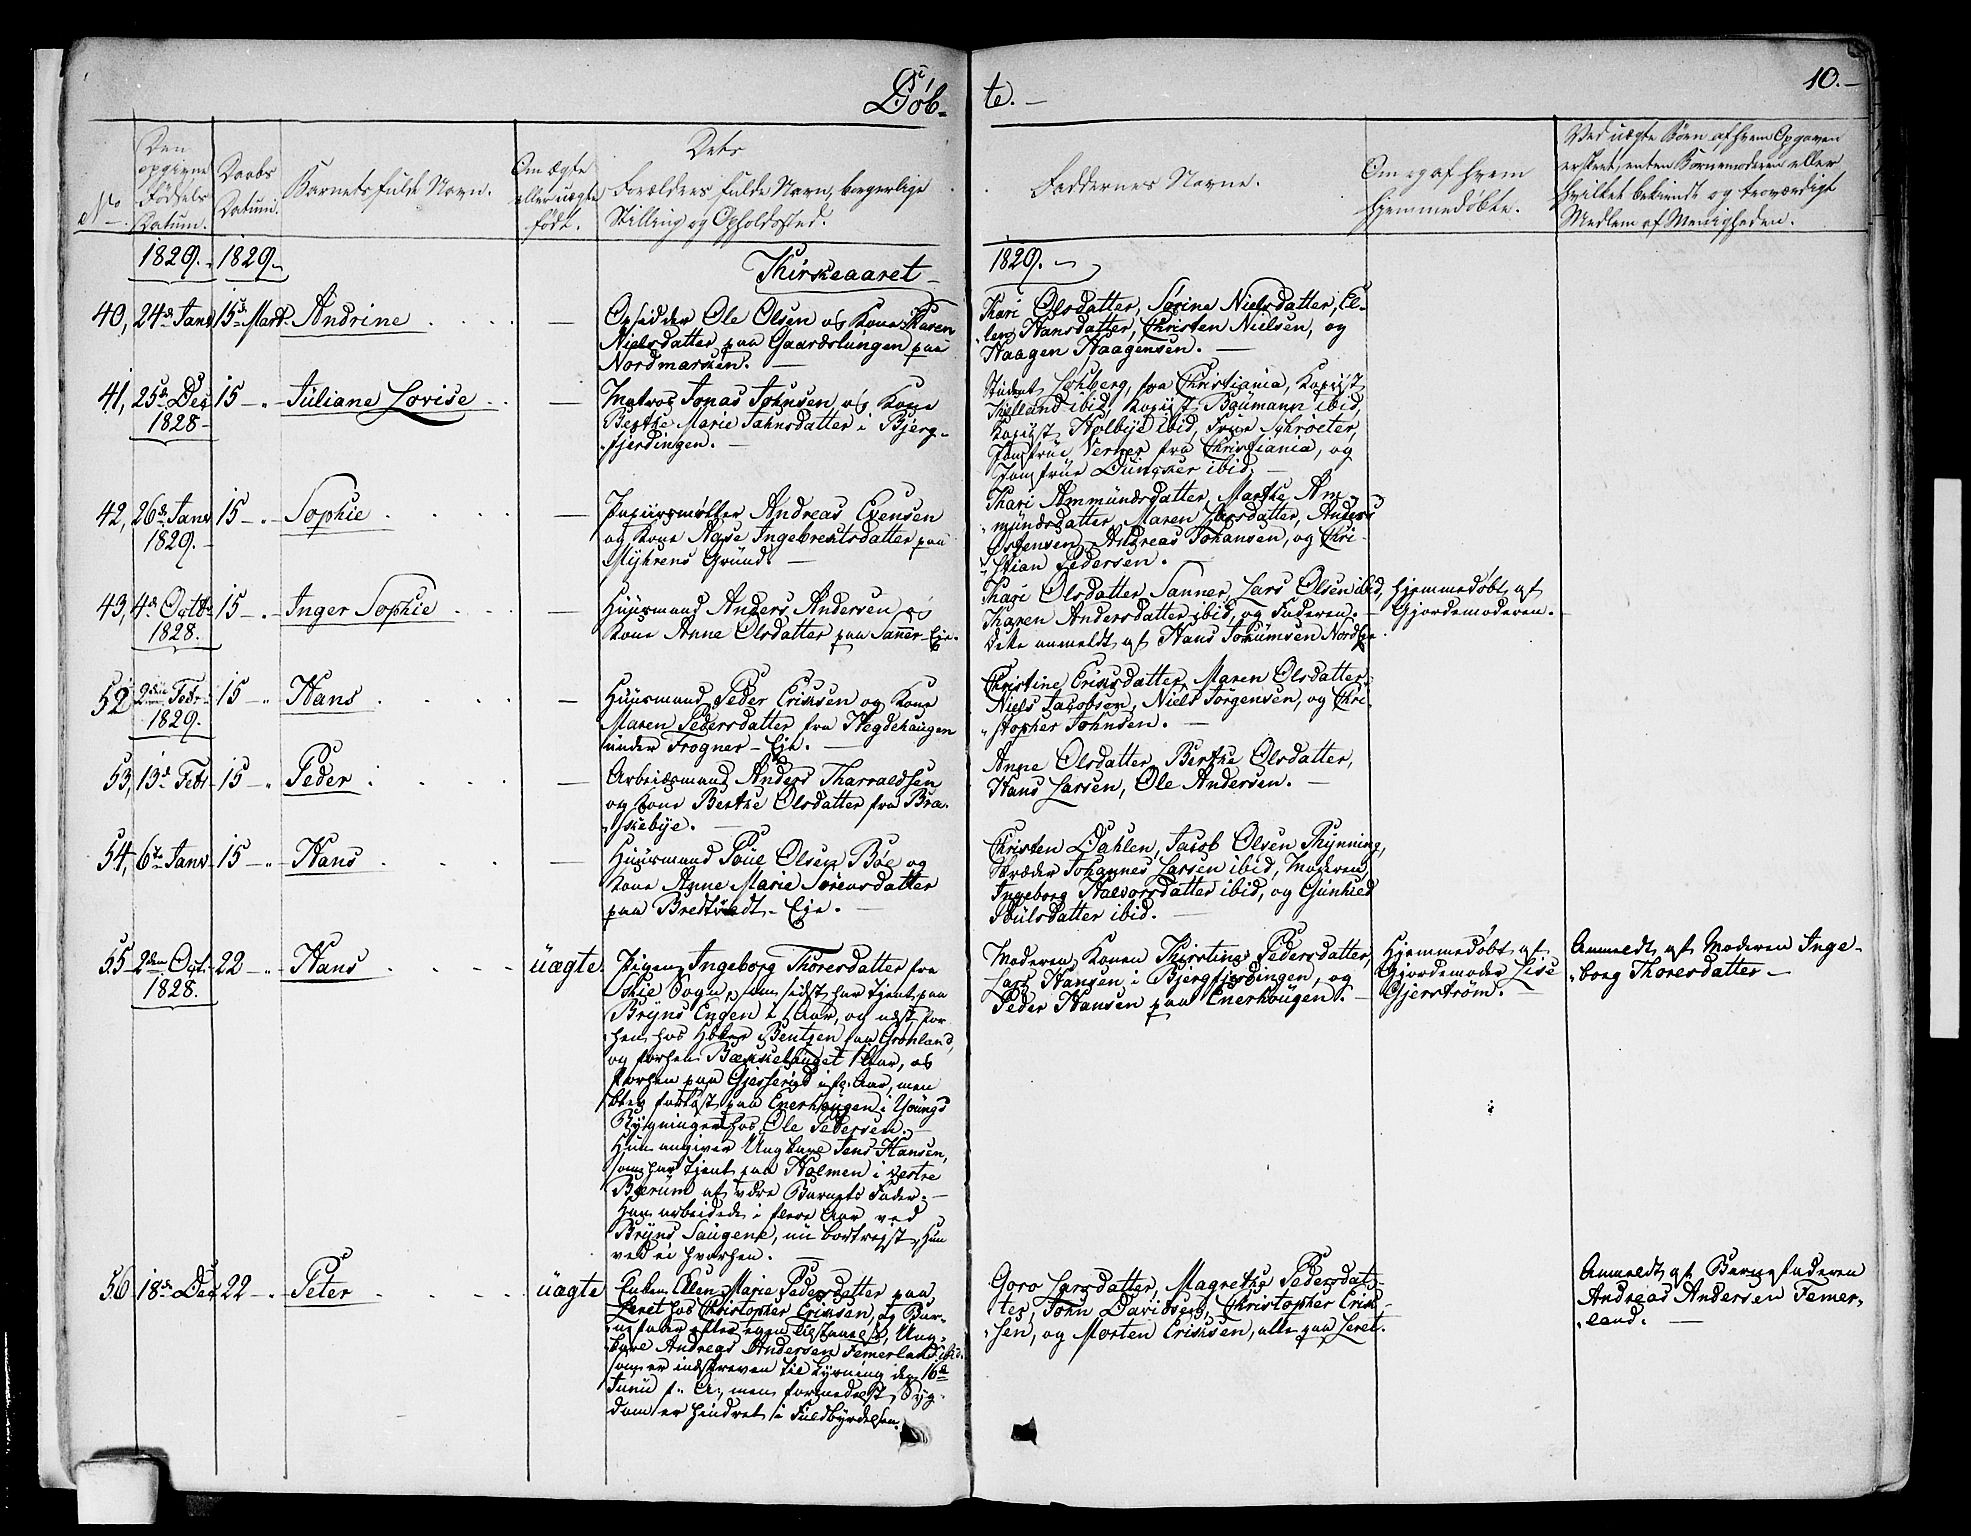 Døb-
te. -
10. -
No
Den
opgivne
Fødsels
Datum.
Daabs
Datum.
Barnets fulde Navn.
Om ægte
eller uægte
født.
Dets
Forældres fulde Navn, borgerlige
Stilling og Opholdssted.
Faddernes Navne.
Om og af hvem
hjemmedøbte.
Ved uægte Børn af hvem Opgaven
er skeet; enten Barnemoderen eller
hvilket bekiendt og troværdigt
Medlem af Menigheden.
1829. 1829.
Kirkeaaret
1829. -
40, 24de Janv 15de Mart. Andrine . . . . —
Opsidder Ole Olsen og Kone Karen
Nielsdatter paa Gaardslungen paa
Nordmarken. —
Kari Olsdatter, Sørine Nielsdatter, El-
len Hansdatter, Christen Nielsen, og
Haagen Haagensen. —
41, 25de Dec 15 - „ - Juliane Lovise . . —
1828 -
Matros Jonas Johnsen og Kone
Berthe Marie Jahnsdatter i Bjerg-
fjerdingen. —
Student Lohberg, fra Christiania, Kopiist
ibid, Kopiist Baumann ibid,
Kopiist Holbye ibid, Frue Schroeter,
Jomfrue Verner fra Christiania, og
Jomfrue Duncker ibid. —
42, 26de Janv 15 - „ - Sophie . . . . —
1829. -
Papiirsmøller Andreas Evensen
og Kone Aase Ingebregtsdatter paa
Myhrens Grund. —
Kari Ammundsdatter, Marthe Am-
mundsdatter, Maren Larsdatter, Anders
Østensen, Andreas Johansen, og Chri-
stian Pedersen.
43, 4de Octb 15 - „ - Inger Sophie . . . —
1828.
Huusmand Anders Andersen og
Kone Anne Olsdatter paa Sanner-Eje.
Kari Olsdatter Sanner, Lars Olsen ibid,
Karen Andersdatter ibid, og Faderen. —
Dette anmeldt af Hans Nordbye
Hjemmedøbt af
Gjordemoderen.
52 2den Febr 15 - „ Hans . . . . —
1829.
Huusmand Peder Erichsen og Kone
Maren Pedersdatter fra Hegdehaugen
under Frogner-Eje. —
Christine Erichsdatter, Maren Olsdatter,
Niels Jacobsen, Niels Jørgensen, og Chri-
stopher Johnsen. —
53, 13de Febr 15 - „ Peder . . . . —
Arbeidsmand Anders Tharraldsen
og Kone Berthe Olsdatter fra Bra-
kebye.
Anne Olsdatter, Berthe Olsdatter,
Hans Larsen, Ole Andersen. —
54, 6te Janv 15 - „ - Hans . . . . —
Huusmand Poul Olsen Bøe og
Kone Anne Marie Sørensdatter
paa Bredtvedt-Eje. —
Christen Dahlen, Jacob Olsen Rynning,
Skræder Johannes Larsen ibid, Moderen
Ingeborg Halvorsdatter ibid, og Gunhild
Poulsdatter ibid. —
55 2den Oct. 22 - „ - Hans . . . . uægte
1828.
Pigen Ingeborg Thoresdatter fra
Skie Sogn, som sidst har tjent paa
Bryns Engen i Aar, og næst for
hen hos Høker Bentzen paa Grønland,
og forhen Bækkelauget 1 Aar, og
forhen paa i fl. Aar, men
blev forløst paa Enerhougen i Youngs
Bygninger hos Ole Pedersen. —
Hun angiver Ungkarl Jens Hansen,
som har tjent paa Holmen i vestre
Bærum at være Barnets Fader. —
Han arbeidede i flere Aar ved
Bryns Saugene, nu bortrejst, Hun
ved ei hvorhen. —
Moderen, Konen Kirstine Pedersdatter,
Lars Hansen i Bjergfjerdingen, og
Peder Hansen paa Enerhougen. —
Hjemmedøbt af
Gjordemoder Lise
Gjerstrøm. —
Anmeldt af Moderen Inge-
borg Thoresdatter —
56 18de Dec 22 - „ Peter . . . . uægte
Enken Elen Marie Pedersdatter paa
Leret hos Christopher Erichsen, og Bar-
nefader efter egen Tilstaaelse, Ung-
karl Andreas Andersen Femerland ibid.
som er indskreven til Lysning den 16de
Junii f. A., men formedelst Syg-
dom er hindret i Fuldbyrdelsen.
Goro Larsdatter, Magrethe Pedersdat-
ter, John Davidsen, Christopher Erich-
sen, og Morten Erichsen, alle paa Leret.
Anmeldt af Barnefaderen
Andreas Andersen Femer-
land. —